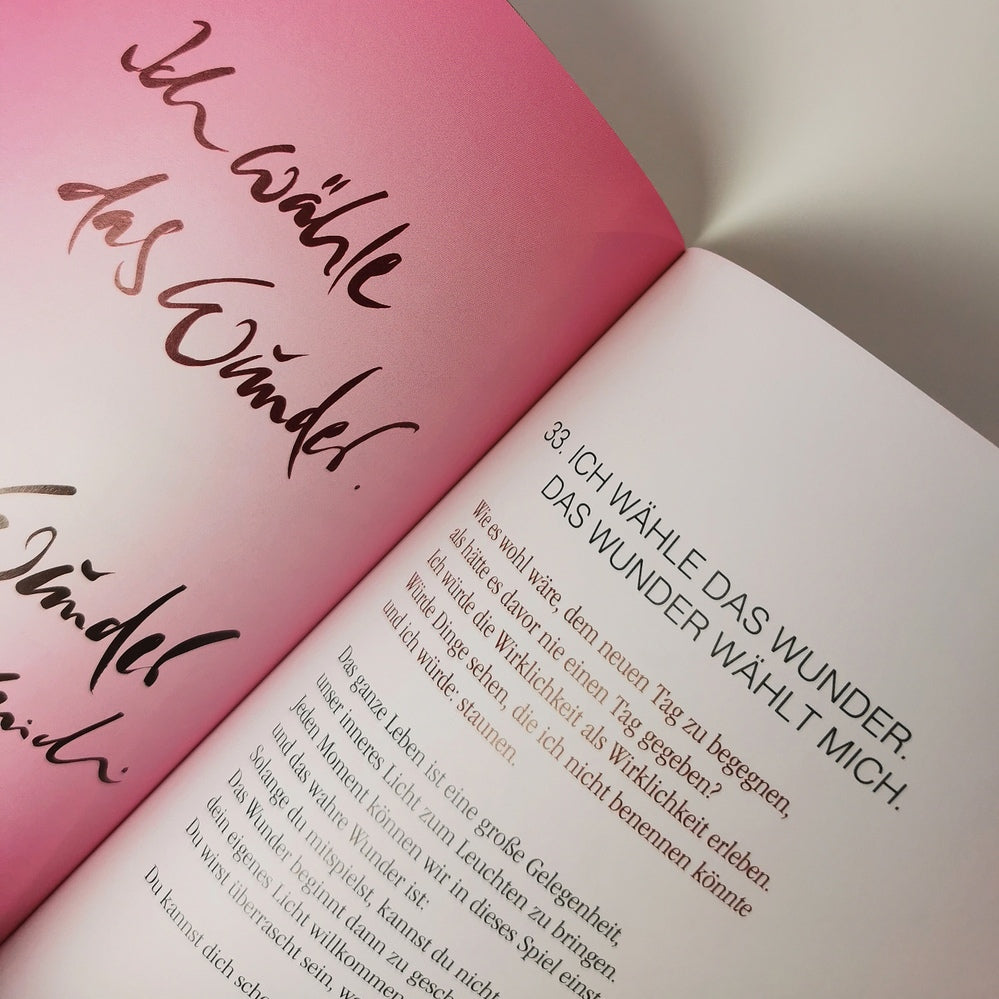 Ich wähle
das Wunder.
Wunder
mich.
33. ICH WÄHLE DAS WUNDER.
DAS WUNDER WÄHLT MICH.
Wie es wohl wäre, dem neuen Tag zu begegnen,
als hätte es davor nie einen Tag gegeben?
Ich würde die Wirklichkeit als Wirklichkeit erleben.
Würde Dinge sehen, die ich nicht benennen könnte
und ich würde: staunen.
Das ganze Leben ist eine große Gelegenheit,
unser inneres Licht zum Leuchten zu bringen.
Jeden Moment können wir in dieses Spiel einst
und das wahre Wunder ist:
Solange du mitspielst, kannst du nicht
Das Wunder beginnt dann zu gesch
dein eigenes Licht willkommen
Du wirst überrascht sein, w
Du kannst dich sch